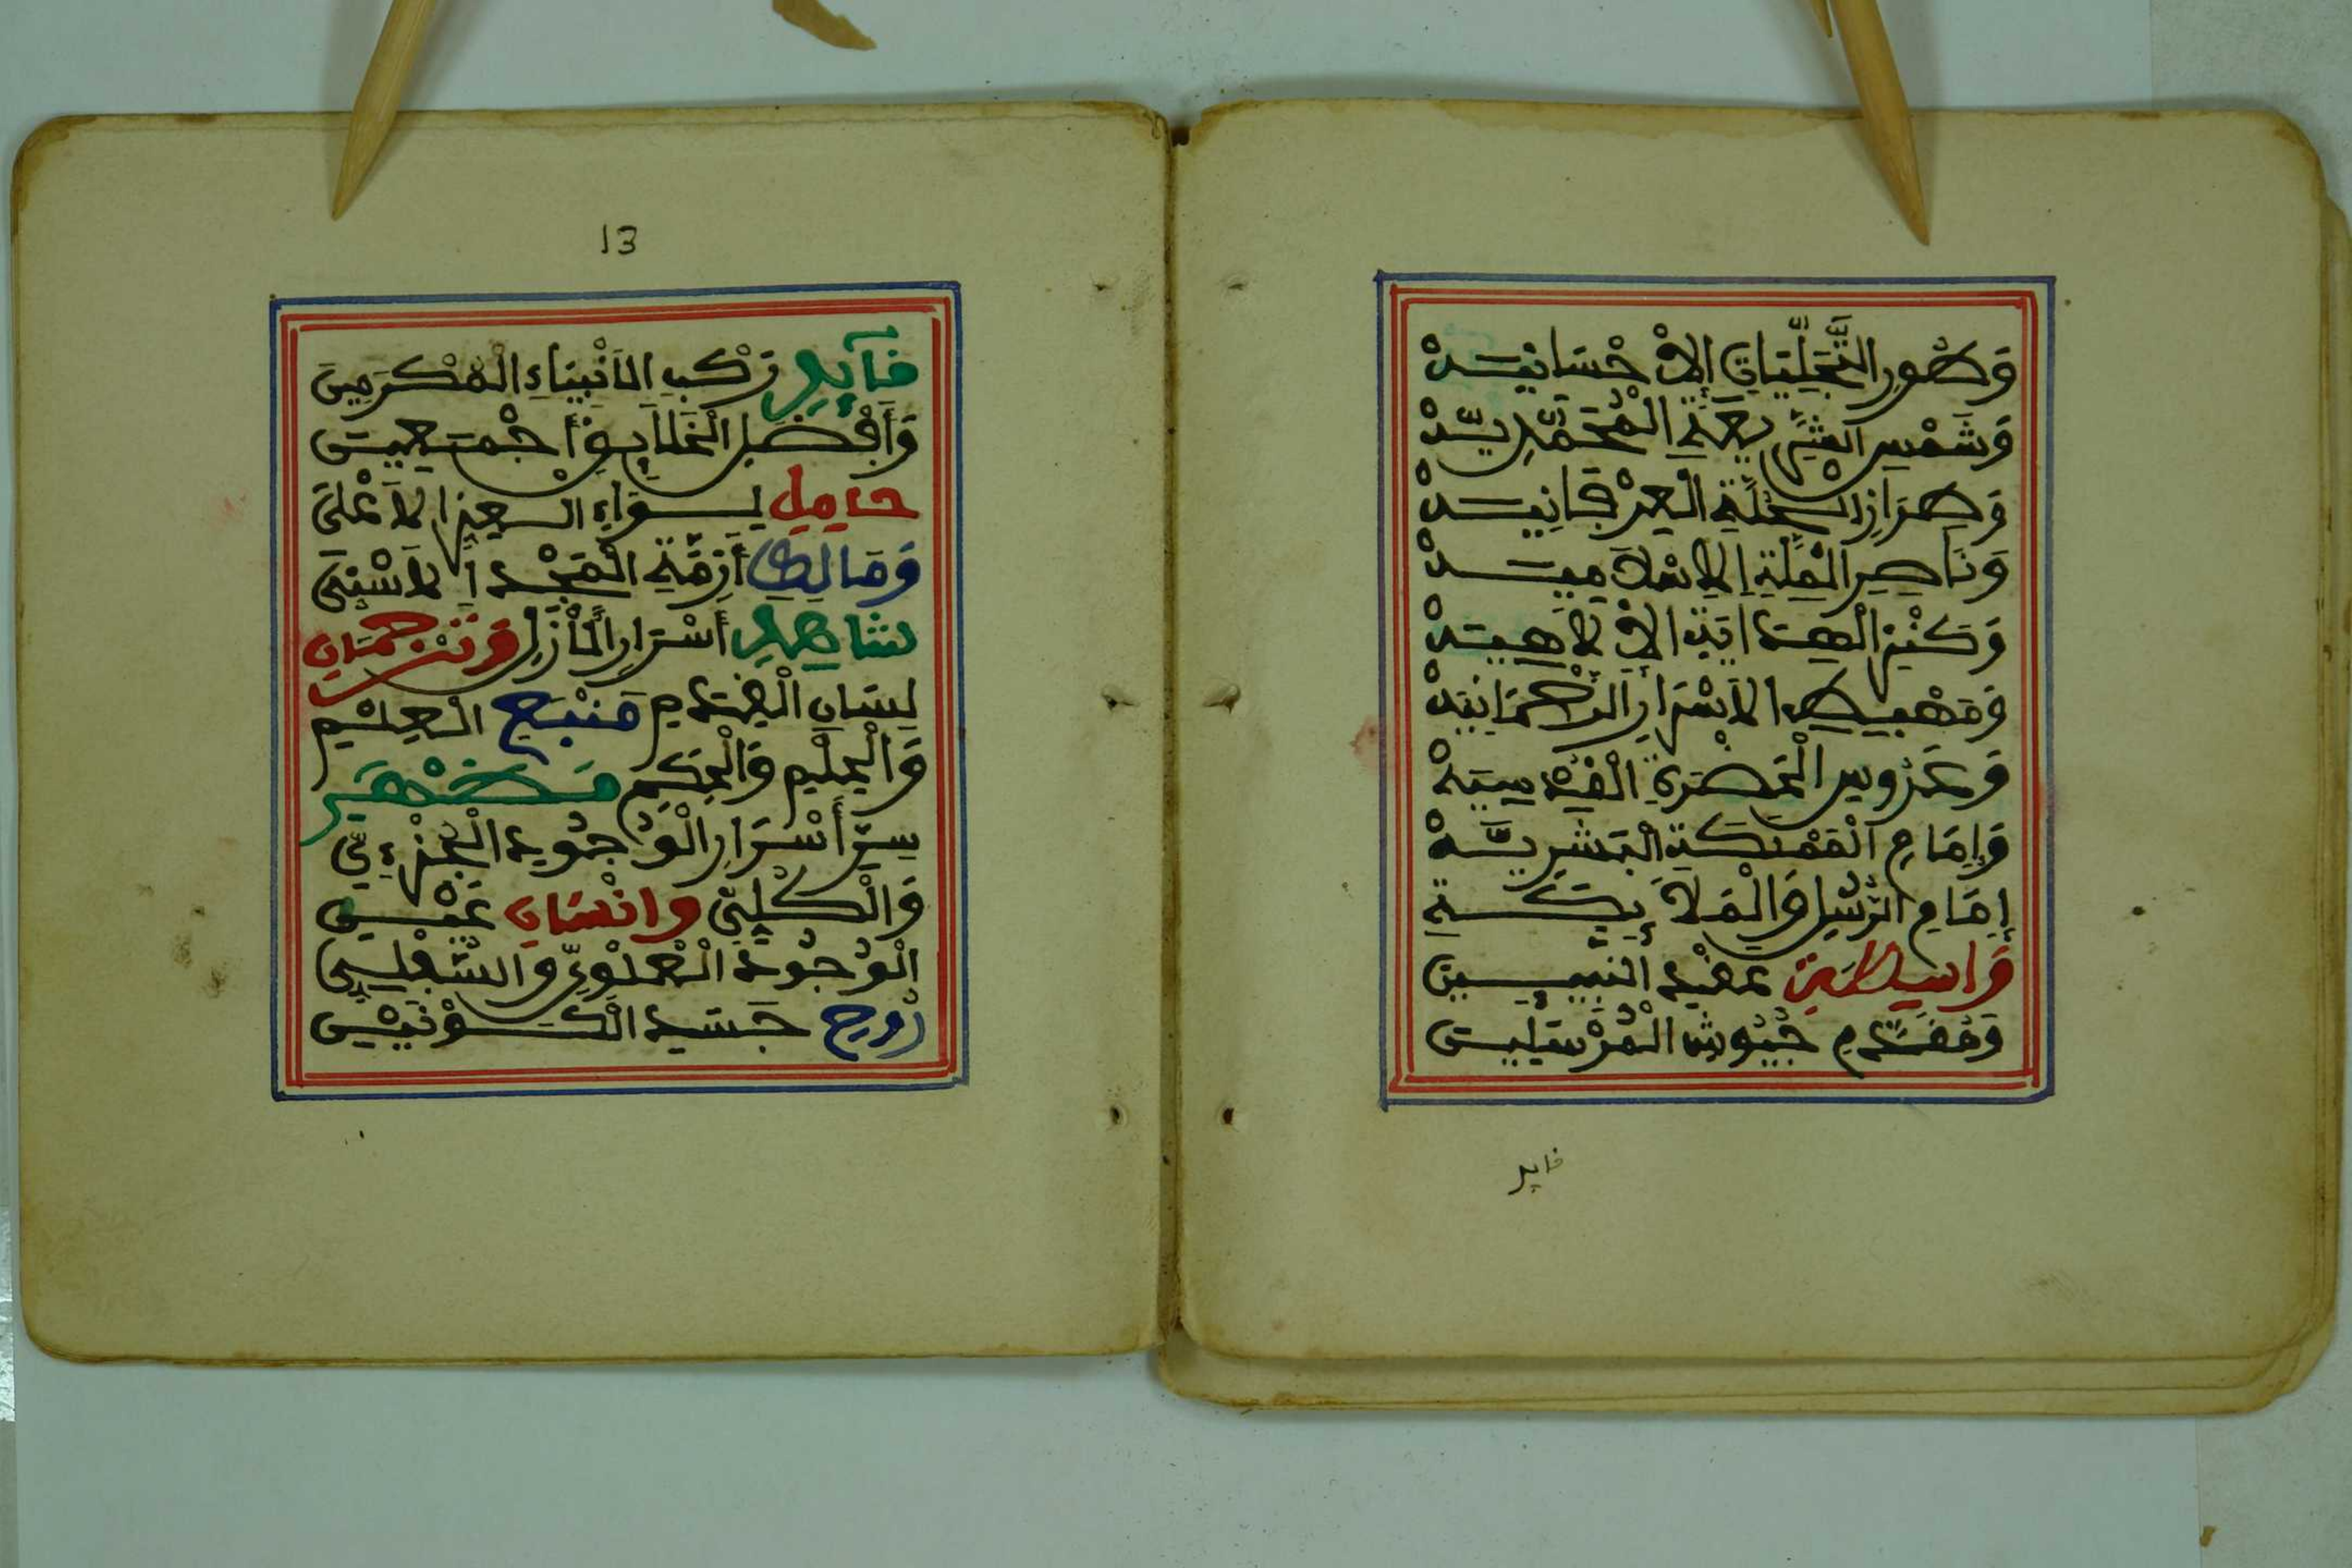 وَطُورِ التَّجَلِّيَاتِ الْإِحْسَانِيَّةْ
وَشَمْسِ الشَّرِيعَةِ الْمُحَمَّدِيَّةْ
وَطِرَازِ الْحُلَّةِ الْعِرْفَانِيَّةْ
وَنَاصِرِ الْمِلَّةِ الْإِسْلَامِيَّةْ
وَكَنْزِ الْهِدَايَةِ الْإِلَاهِيَّةْ
وَمَهْبِطِ الْأَسْرَارِ الرَّحْمَانِيَّةْ
وَعَرُوسِ الْحَضْرَةِ الْقُدْسِيَّةْ
وَإِمَامِ الْمَمْلَكَةِ الْبَشَرِيَّةْ
إِمَامِ الرُّسُلِ وَالْمَلَائِكَةِ
وَاسِطَةِ عِقْدِ النَّبِيِّينَ
وَمُقَدَّمِ جُيُوشِ الْمُرْسَلِينَ
قايد
13
قَآئِدِ رَكْبِ الْأَنْبِيَاءِ الْمُكْرَمِينَ
وَأَفْضَلِ الْخَلَائِقِ أَجْمَعِينَ
حَامِلِ لِوَاءِ الْعِزِّ الْأَعْلَى
وَمَالِكِ أَزِمَّةِ الْمَجْدِ الْأَسْنَى
شَاهِدِ أَسْرَارِ الْأَزَلِ وَتَرْجُمَانِ
لِسَانِ الْقِدَمِ مَنْبَعِ الْعِلْمِ
وَالْحِلْمِ وَالْحِكَمِ مَظْهَرِ
سِرِّ أَسْرَارِ الْوُجُودِ الْجُزْءِيِّ
وَالْكُلِّيِّ وَإِنْسَانِ عَيْنِ
الْوُجُودِ الْعُلْوِيِّ وَالسُّفْلِيِّ
رُوحِ جَسَدِ الْكَوْنَيْنِ